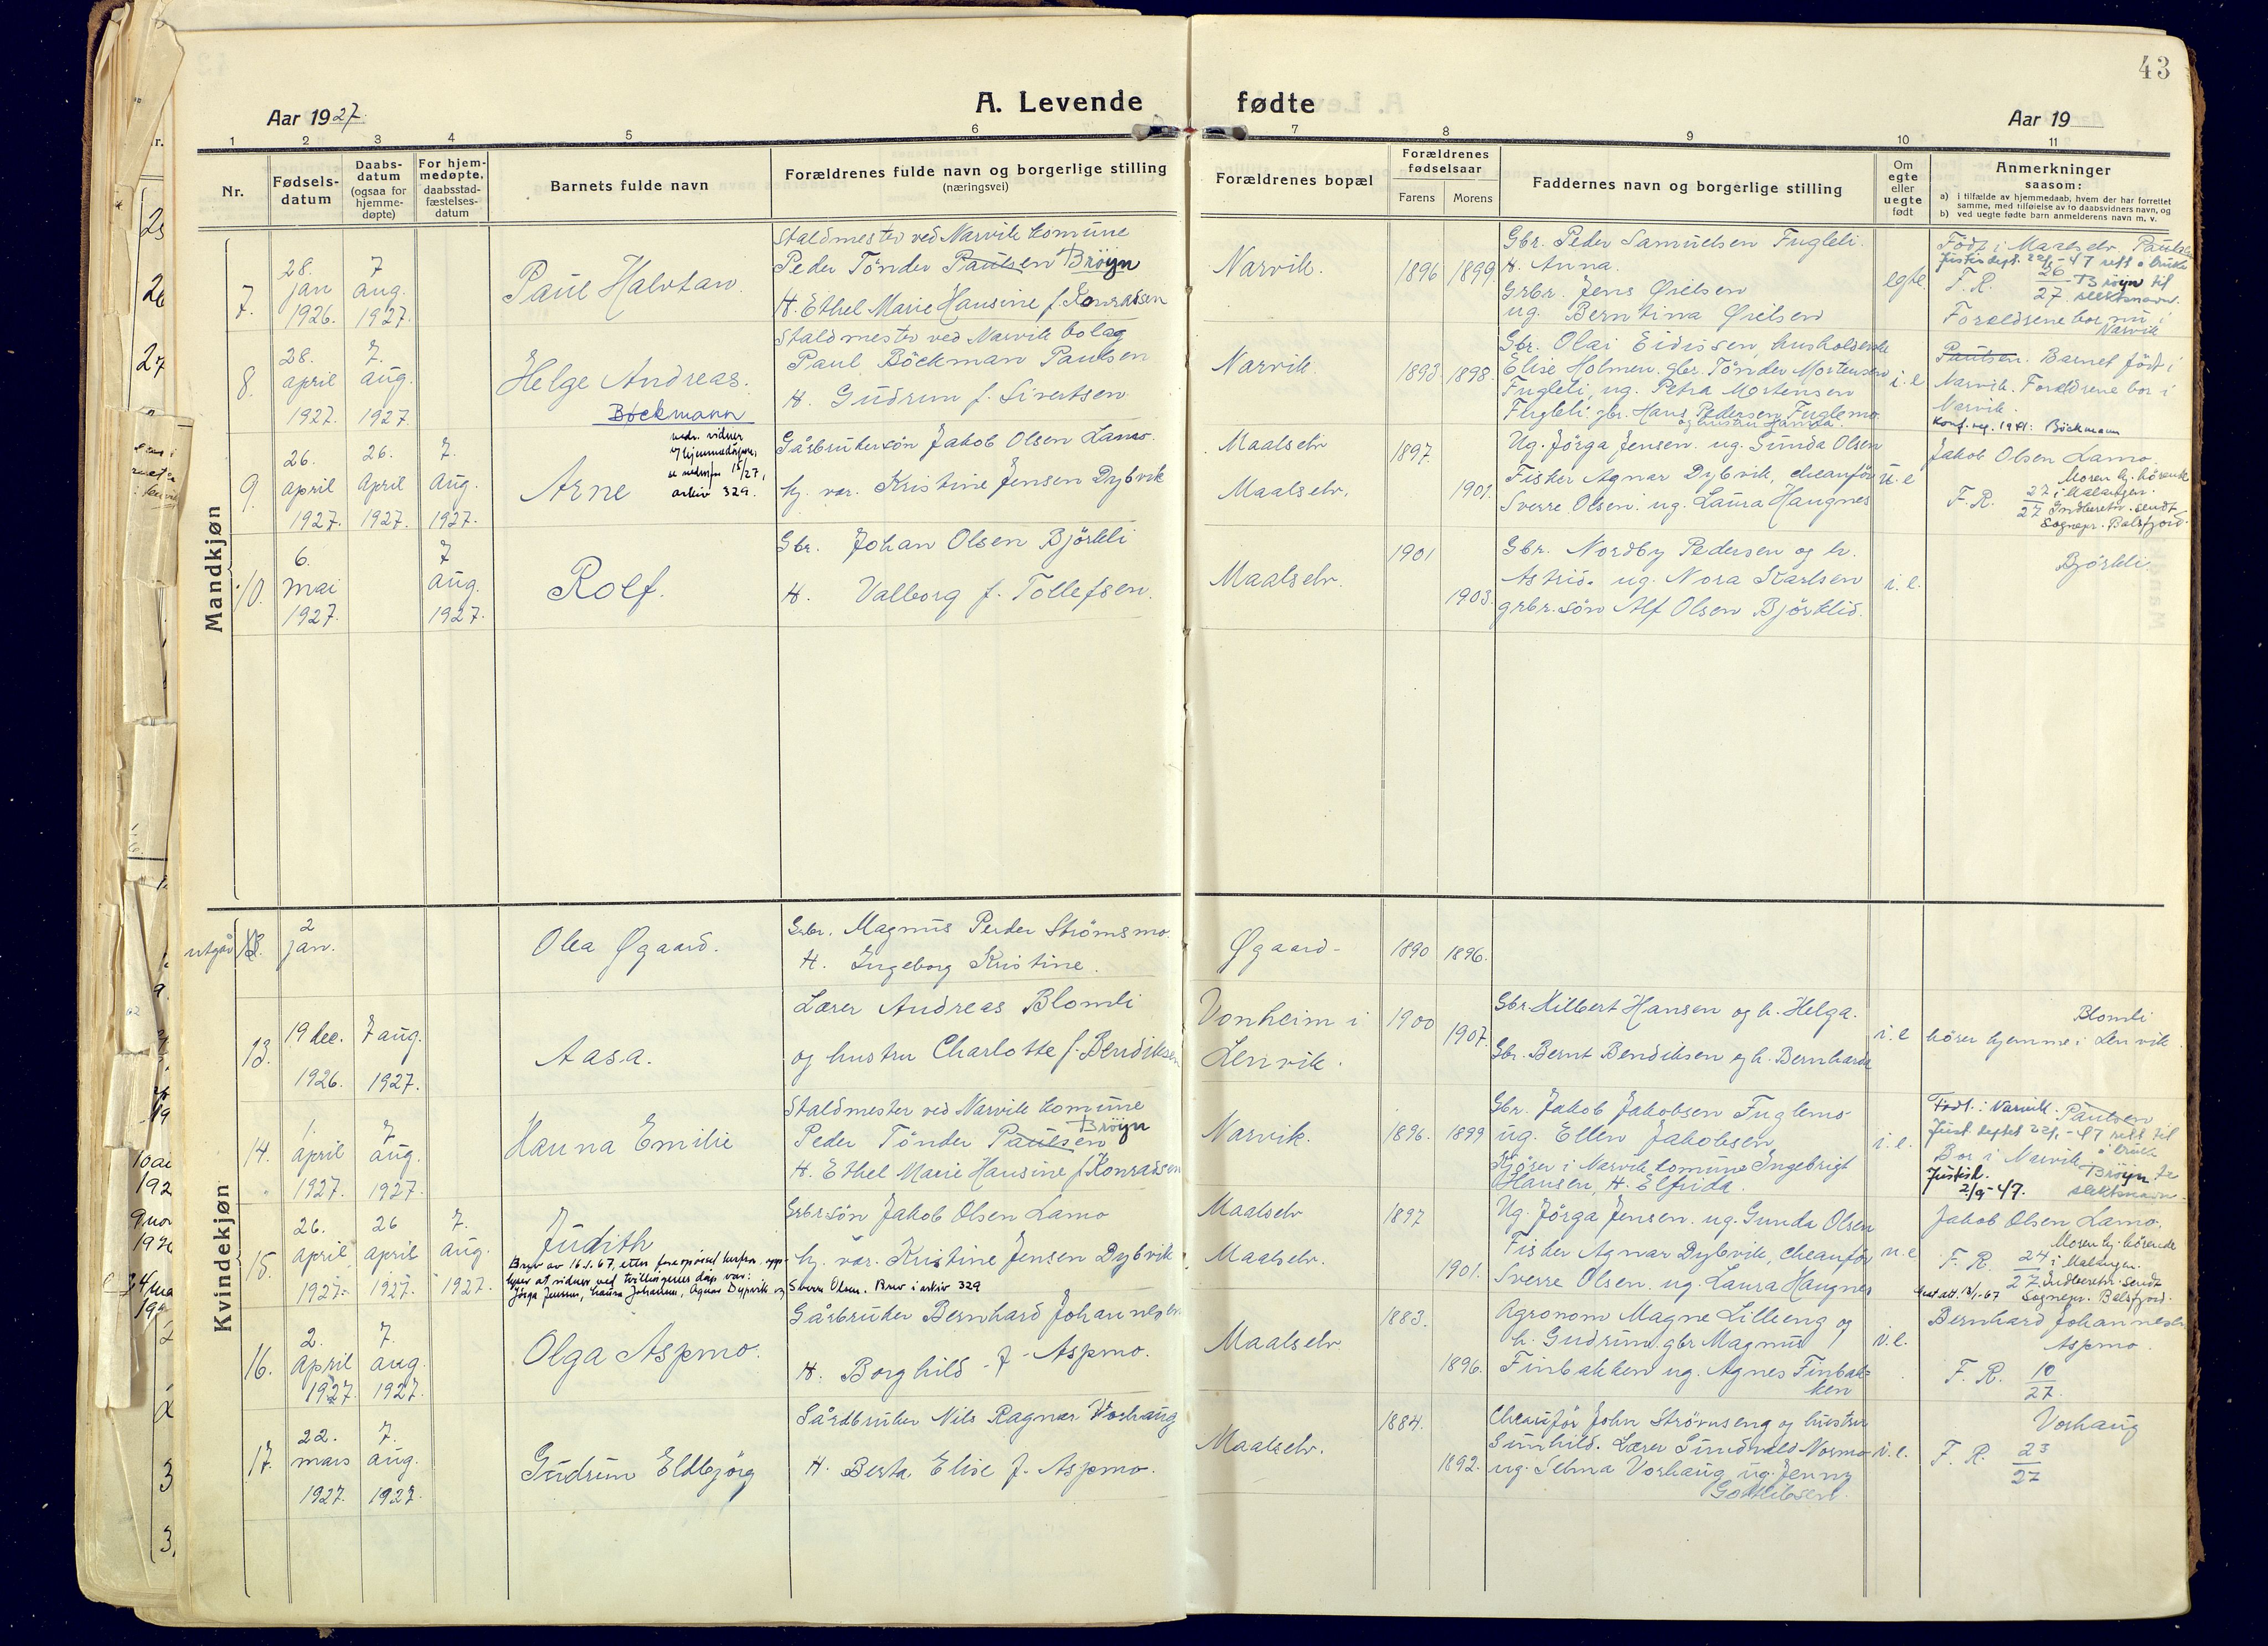 43
A. Levende fødte
Aar 1927.
Aar 19
1 2 3 4 5 6 7 8 9 10 11
Nr.
Fødsels-
datum
Daabs-
datum
(ogsaa for
hjemme-
døpte)
For hjem-
medøpte,
daabsstad-
fæstelses-
datum
Barnets fulde navn
Forældrenes fulde navn og borgerlige stilling
(næringsvei)
Forældrenes bopæl
Forældrenes
fødselsaar
Farens Morens
Faddernes navn og borgerlige stilling
Om
egte
eller
uegte
født
Anmerkninger
saasom:
a) i tilfælde av hjemmedaab, hvem der har forrettet
samme, med tilføielse av to daabsvidners navn, og
b) ved uegte fødte barn anmelderens navn m. v.
Mandkjøn
7.
28.
jan
1926.
7
aug.
1927.
Paul Halvtan
Staldmester ved Narvik komune
Peder Tönder Paulsen Bröyn
H. Ethel Marie Hansine f. Konradsen
Narvik.
1896 1899
Gbr. Peder Samuelsen Fugleli.
H. Anna.
Grbr. Jens Øielsen
ug. Berntina Øielsen
egte.
Födt i Maalselv. Paulsen
F. R. 26/27 Bröyn til
slektsnavn.
Forældrene bor nu i
Narvik
8.
28.
april
1927.
7.
aug.
1927.
Helge Andreas.
Bøckmann
Staldmester ved Narvik bolag
Paul Böckman Paulsen
H. Gudrun f. Sivertsen
Narvik.
1893 1898.
Gbr. Olai Eidissen, husholderske
Elise Holmen. gbr. Tönder Mortensen
Fugleli, ug. Petra Mortensen
Fugleli gbr. Hans Pedersen Fuglemo
og hustru Hanna.
i. e
Paulsen. Barnet födt i
Narvik. Forældrene bor i
Narvik.
Konf. reg. 1941: Böckmann
9.
26.
april
1927.
26.
april
1927.
7.
aug.
1927.
Arne
vedr. vidner
v/hjemmedåpen,
se nedenfor 15/27,
arkiv 329.
Gårbrukersön Jakob Olsen Lamo.
hj. vær. Kristine Jensen Dybvik
Maalselv
Maalselv.
1897.
1901.
Ug. Jörga Jensen. ug. Gunda Olsen
Fisker Agnar Dybvik, cheauför
Sverre Olsen. ug. Laura Haugnes
u. e
Jakob Olsen Lamo
Moren hj. hörende
i Malangen.
F. R. 27/27 Indberetn. sendt
Sognepr. Balsfjord.
10.
6.
mai
1927.
7
aug.
1927.
Rolf.
Gbr. Johan Olsen Björkli
H. Valborg f. Tollefsen.
Maalselv.
1901
1903.
Gbr. Nordby Pedersen og h.
Astrid. ug. Nora Karlsen
grbr.sön Alf Olsen Björklid.
i. e.
Björkli.
Kvindekjøn
utgår
2
jan.
Olea Øgaard.
Grbr. Magnus Peder Strömsmo.
H. Ingeborg Kristine.
Øgaard-
1890 1896.
13.
19 dec.
1926.
7 aug.
1927.
Aasa.
Lærer Andreas Blomli
og hustru Charlotte f. Bendiksen
Vonheim i
Lenvik.
1900
1907.
Gbr. Hilbert Hansen og h. Helga.
Gbr. Bernt Bendiksen og h. Bernharda
i. e
Blomli
hörer hjemme i Lenvik
14.
1.
april
1927.
7
aug.
1927.
Hanna Emilie
Staldmester ved Narvik komune
Peder Tönder Paulsen Bröyn
H. Ethel Marie Hansine f. Konradsen
Narvik.
1896. 1899
Gbr. Jakob Jakobsen Fuglemo
ug. Ellen Jakobsen
Kjörer i Narvik komune Ingebrigt
Hansen, H. Elfrida.
i. e.
Födt i Narvik. Paulsen
Just. deptet 22/1-47 rett til
å bruke
Bor i Narvik Bröyn
slektsnavn
2/9-47.
15.
26.
april
1927.
26
april
1927.
7.
aug.
1927.
Judith
Brev av 16.1.67, etter forespörsel herfra, opp-
lyser at vidner ved tvillingenes dåp var:
Jörga Jensen, Laura Johansen, Agnar Dypvik og Sverre Olsen. Brev i arkiv 329
Grbrsön Jakob Olsen Lamo
hj. vær. Kristine Jensen Dybvik.
Maalselv
Maalselv.
1897
1901.
Ug. Jörga Jensen. ug. Gunda Olsen
Fisker Agnar Dybvik, cheauför
Sverre Olsen. ug. Laura Haugnes
u. e
Jakob Olsen Lamo.
Moren hj. hörende
i Malangen.
F. R. 24/27 Indberetn. sendt
Sognepr. Balsfjord.
16.
2.
april
1927.
7.
aug.
1927.
Olga Aspmo.
Gårbruker Bernhard Johannesen
H. Borghild f. Aspmo.
Maalselv
1883.
1896.
Agronom Magne Lilleeng og
h. Gudrun. gbr Magnus
Finbakken ug. Agnes Finbak-
ken
i. e.
Bernhard Johannesen
Aspmo.
F. R. 10/27.
17.
22.
mars
1927.
7.
aug.
1927.
Gudrun Eldbjörg
Gårdbruker Nils Ragnar Vorhaug
H. Berta Elise f. Aspmo.
Maalselv.
1884.
1892.
Cheauför John Strömseng og hustru
Gunhild. Lærer Gundvald Normo
ug. Selma Vorhaug, ug. Jenny
Gottlibsen.
i. e.
Vorhaug
F. R. 23/27